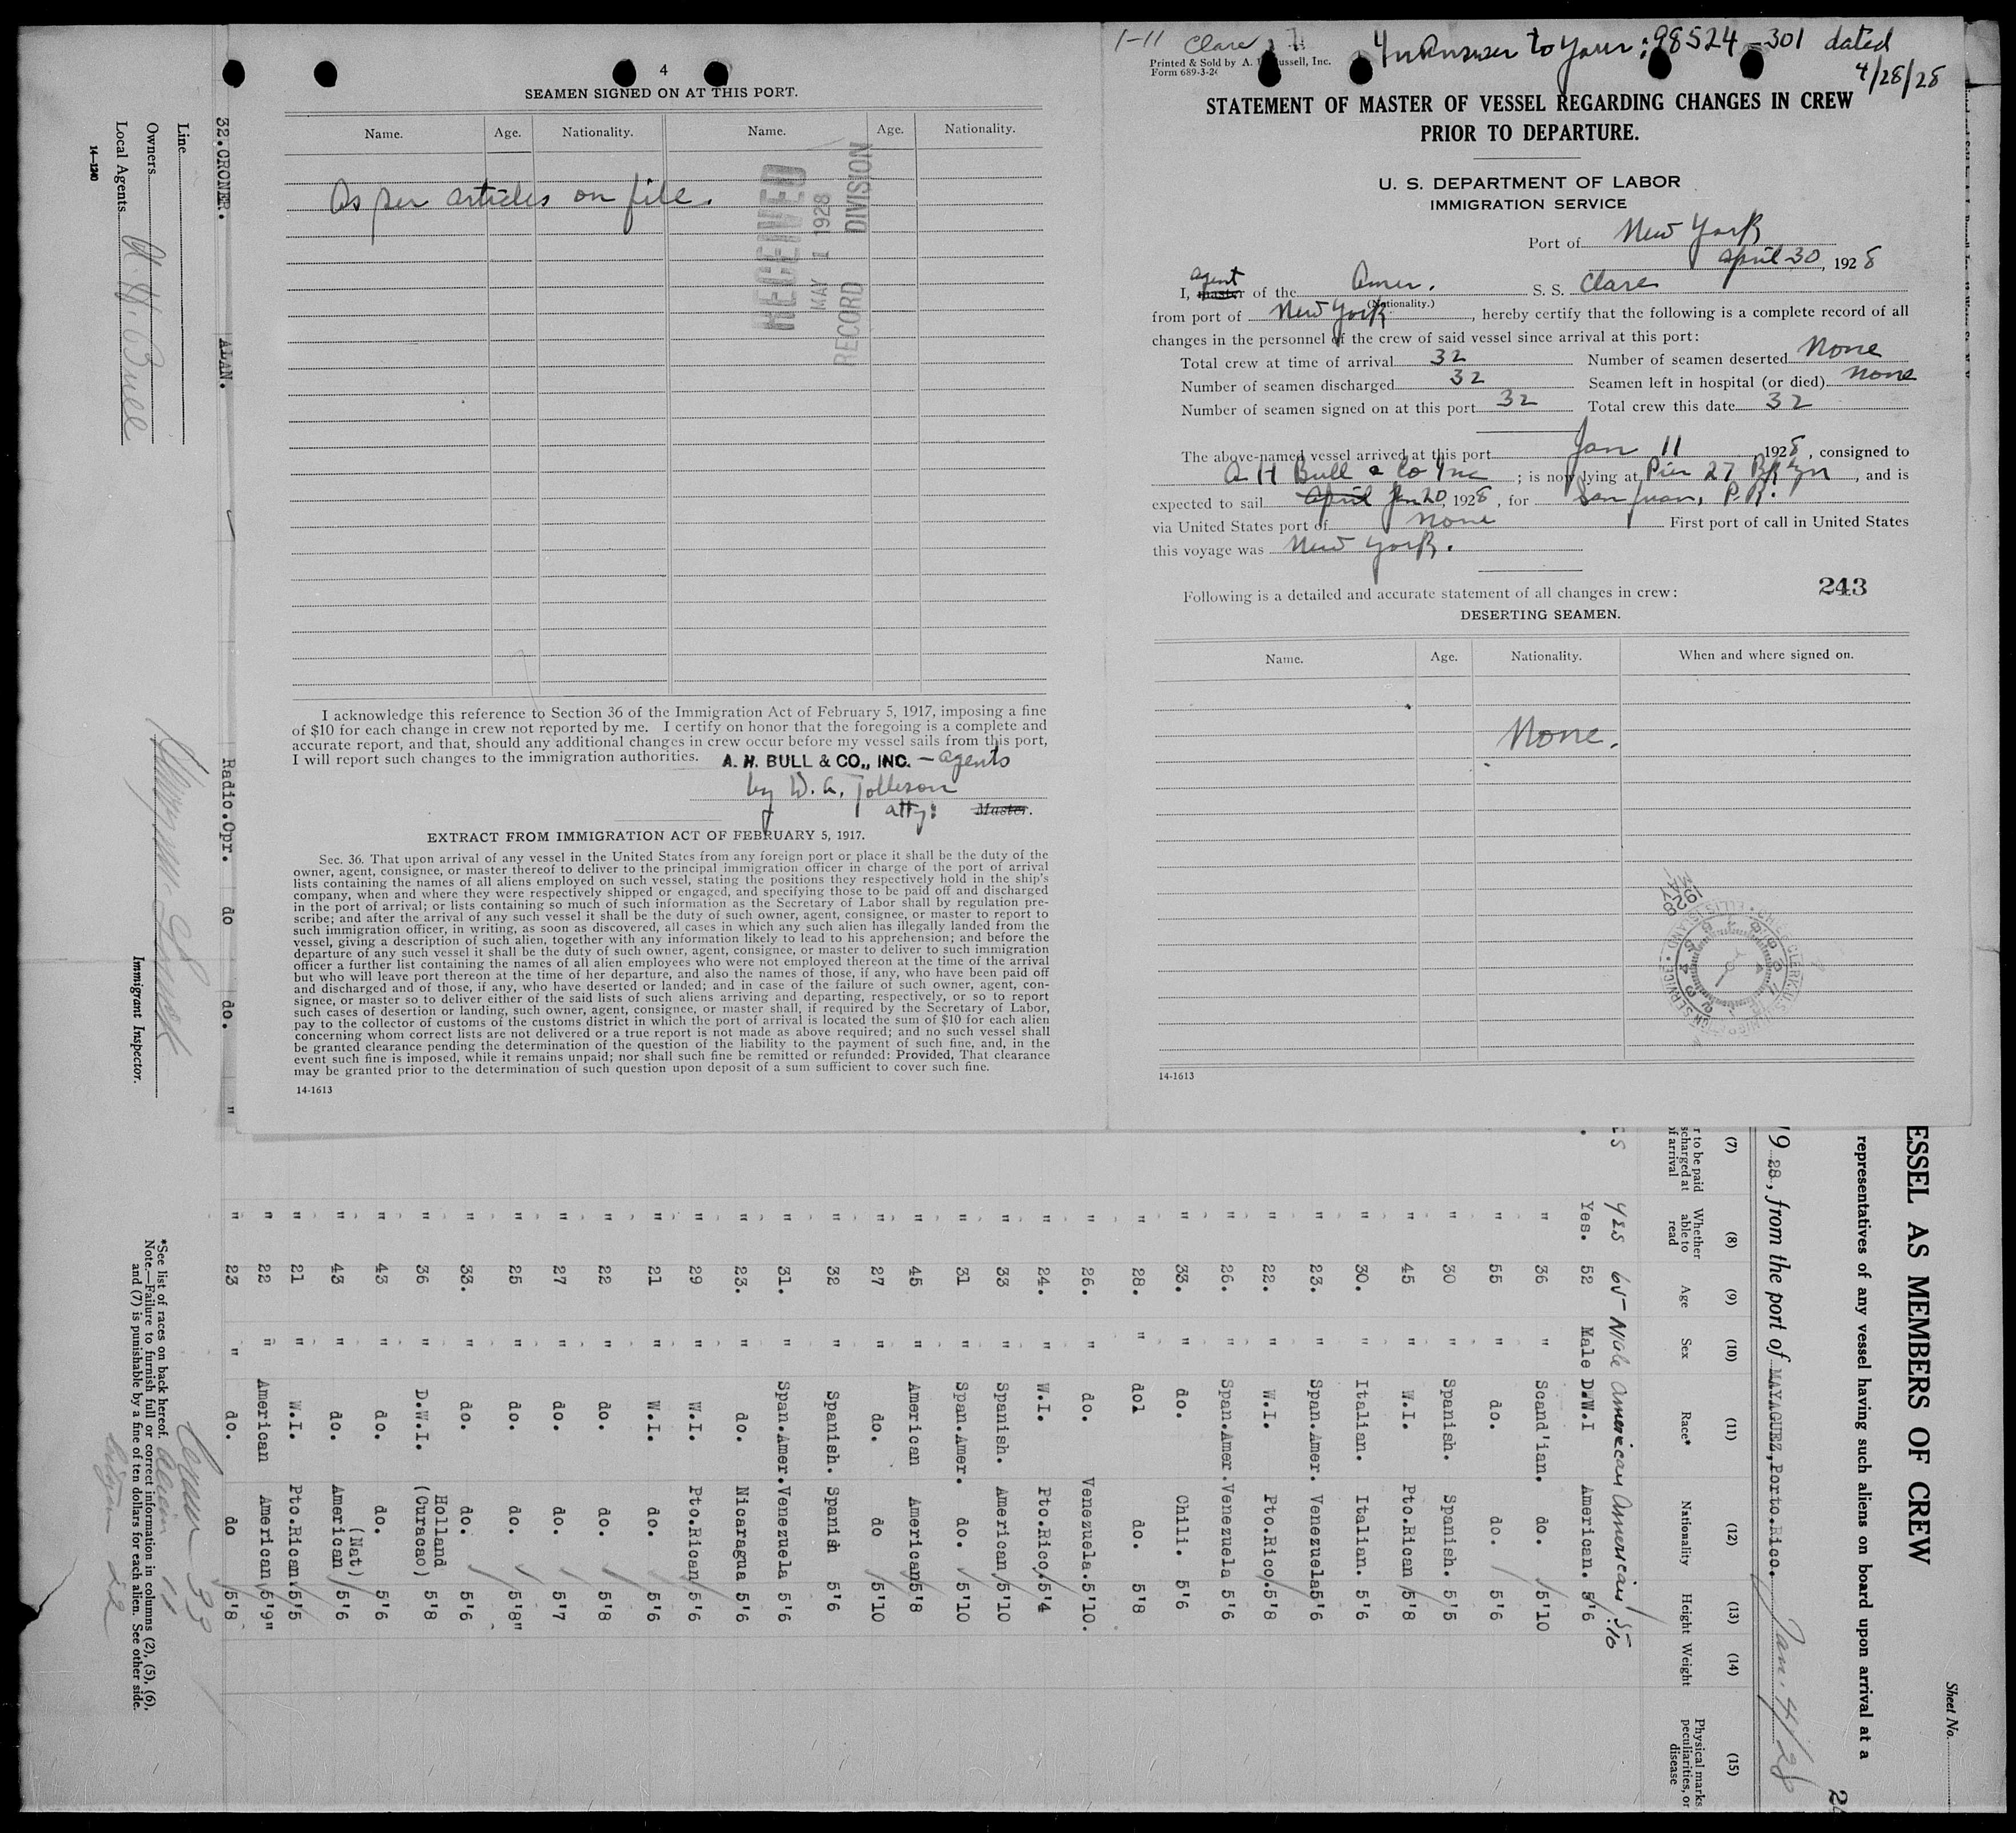 4
SEAMEN SIGNED ON AT THIS PORT.
Name. Age. Nationality. Name. Age. Nationality.
As per articles on file.
RECEIVED
MAY 1 1928
RECORD DIVISION
I acknowledge this reference to Section 36 of the Immigration Act of February 5, 1917, imposing a fine
of $10 for each change in crew not reported by me. I certify on honor that the foregoing is a complete and
accurate report, and that, should any additional changes in crew occur before my vessel sails from this port,
I will report such changes to the immigration authorities. A. H. BULL & CO., INC. – agents
by W. A. Tolleson
atty: Master.
EXTRACT FROM IMMIGRATION ACT OF FEBRUARY 5, 1917.
Sec. 36. That upon arrival of any vessel in the United States from any foreign port or place it shall be the duty of the
owner, agent, consignee, or master thereof to deliver to the principal immigration officer in charge of the port of arrival
lists containing the names of all aliens employed on such vessel, stating the positions they respectively hold in the ship's
company, when and where they were respectively shipped or engaged, and specifying those to be paid off and discharged
in the port of arrival; or lists containing so much of such information as the Secretary of Labor shall by regulation pre-
scribe; and after the arrival of any such vessel it shall be the duty of such owner, agent, consignee, or master to report to
such immigration officer, in writing, as soon as discovered, all cases in which any such alien has illegally landed from the
vessel, giving a description of such alien, together with any information likely to lead to his apprehension; and before the
departure of any such vessel it shall be the duty of such owner, agent, consignee, or master to deliver to such immigration
officer a further list containing the names of all alien employees who were not employed thereon at the time of the arrival
but who will leave port thereon at the time of her departure, and also the names of those, if any, who have been paid off
and discharged and of those, if any, who have deserted or landed; and in case of the failure of such owner, agent, con-
signee, or master so to deliver either of the said lists of such aliens arriving and departing, respectively, or so to report
such cases of desertion or landing, such owner, agent, consignee, or master shall, if required by the Secretary of Labor,
pay to the collector of customs of the customs district in which the port of arrival is located the sum of $10 for each alien
concerning whom correct lists are not delivered or a true report is not made as above required; and no such vessel shall
be granted clearance pending the determination of the question of the liability to the payment of such fine, and, in the
event such fine is imposed, while it remains unpaid; nor shall such fine be remitted or refunded: Provided, That clearance
may be granted prior to the determination of such question upon deposit of a sum sufficient to cover such fine.
14-1613
1-11 Clare
In Answer to your: 98524-301 dated
4/28/28
Printed & Sold by A. Russell, Inc.
Form 689-3-2
STATEMENT OF MASTER OF VESSEL REGARDING CHANGES IN CREW
PRIOR TO DEPARTURE.
U. S. DEPARTMENT OF LABOR
IMMIGRATION SERVICE
Port of New York
April 30, 1928
agent
I, master of the Amer. S. S. Clare
(Nationality.)
from port of New York, hereby certify that the following is a complete record of all
changes in the personnel of the crew of said vessel since arrival at this port:
Total crew at time of arrival 32 Number of seamen deserted None
Number of seamen discharged 32 Seamen left in hospital (or died) None
Number of seamen signed on at this port 32 Total crew this date 32
The above-named vessel arrived at this port Jan 11 1928, consigned to
A H Bull & Co Inc; is now lying at Pier 27 Bklyn, and is
expected to sail April Jan 20, 1928, for San Juan, P.R.
via United States port of none First port of call in United States
this voyage was New York.
243
Following is a detailed and accurate statement of all changes in crew:
DESERTING SEAMEN.
Name. Age. Nationality. When and where signed on.
None.
14-1613
Sheet No.
ESSEL AS MEMBERS OF CREW
representatives of any vessel having such aliens on board upon arrival at a
1928, from the port of MAYAGUEZ, Porto.Rico. Jan. 4/28
(7) (8) (9) (10) (11) (12) (13) (14) (15)
Whether able to read Age Sex Race* Nationality Height Weight Physical marks, peculiarities, or disease
yes 65 Male American American 5-10
Yes. 52 Male D.W.I American. 5'6
" 36 " Scand'ian. do. 5'10
" 55 " do. do. 5'6
" 30 " Spanish. Spanish. 5'5
" 45 " W.I. Pto.Rican 5'8
" 30. " Italian. Italian. 5'6
" 23. " Span.Amer. Venezuela 5'6
" 22. " W.I. Pto.Rico. 5'8
" 26. " Span.Amer. Venezuela 5'6
" 33. " do. Chili. 5'6
" 28. " dol do. 5'8
" 26. " do. Venezuela. 5'10.
" 24. " W.I. Pto.Rico. 5'4
" 33 " Spanish. American 5'10
" 31 " Span.Amer. do. 5'10
" 45 " American American 5'8
" 27 " do. do 5'10
" 32 " Spanish. Spanish 5'6
" 31. " Span.Amer. Venezuela 5'6
" 23. " do. Nicaragua 5'6
" 29 " W.I. Pto.Rican 5'6
" 21 " W.I. do. 5'6
" 22 " do. do. 5'8
" 27 " do. do. 5'7
" 25 " do. do. 5'8"
" 33. " do. do. 5'6
" 36 " D.W.I. Holland (Curacao) 5'8
" 43 " do. do. 5'6
" 43 " do. (Nat) American 5'6
" 21 " W.I. Pto.Rican. 5'5
" 22 " American American 5'9"
32. CRONER. ALAN. Radio.Opr. do do. " " 23 " do. do 5'8
Line
Owners
Local Agents A. H. Bull
14-1240
Immigrant Inspector.
*See list of races on back hereof.
Note.—Failure to furnish full or correct information in columns (2), (5), (6),
and (7) is punishable by a fine of ten dollars for each alien. See other side.